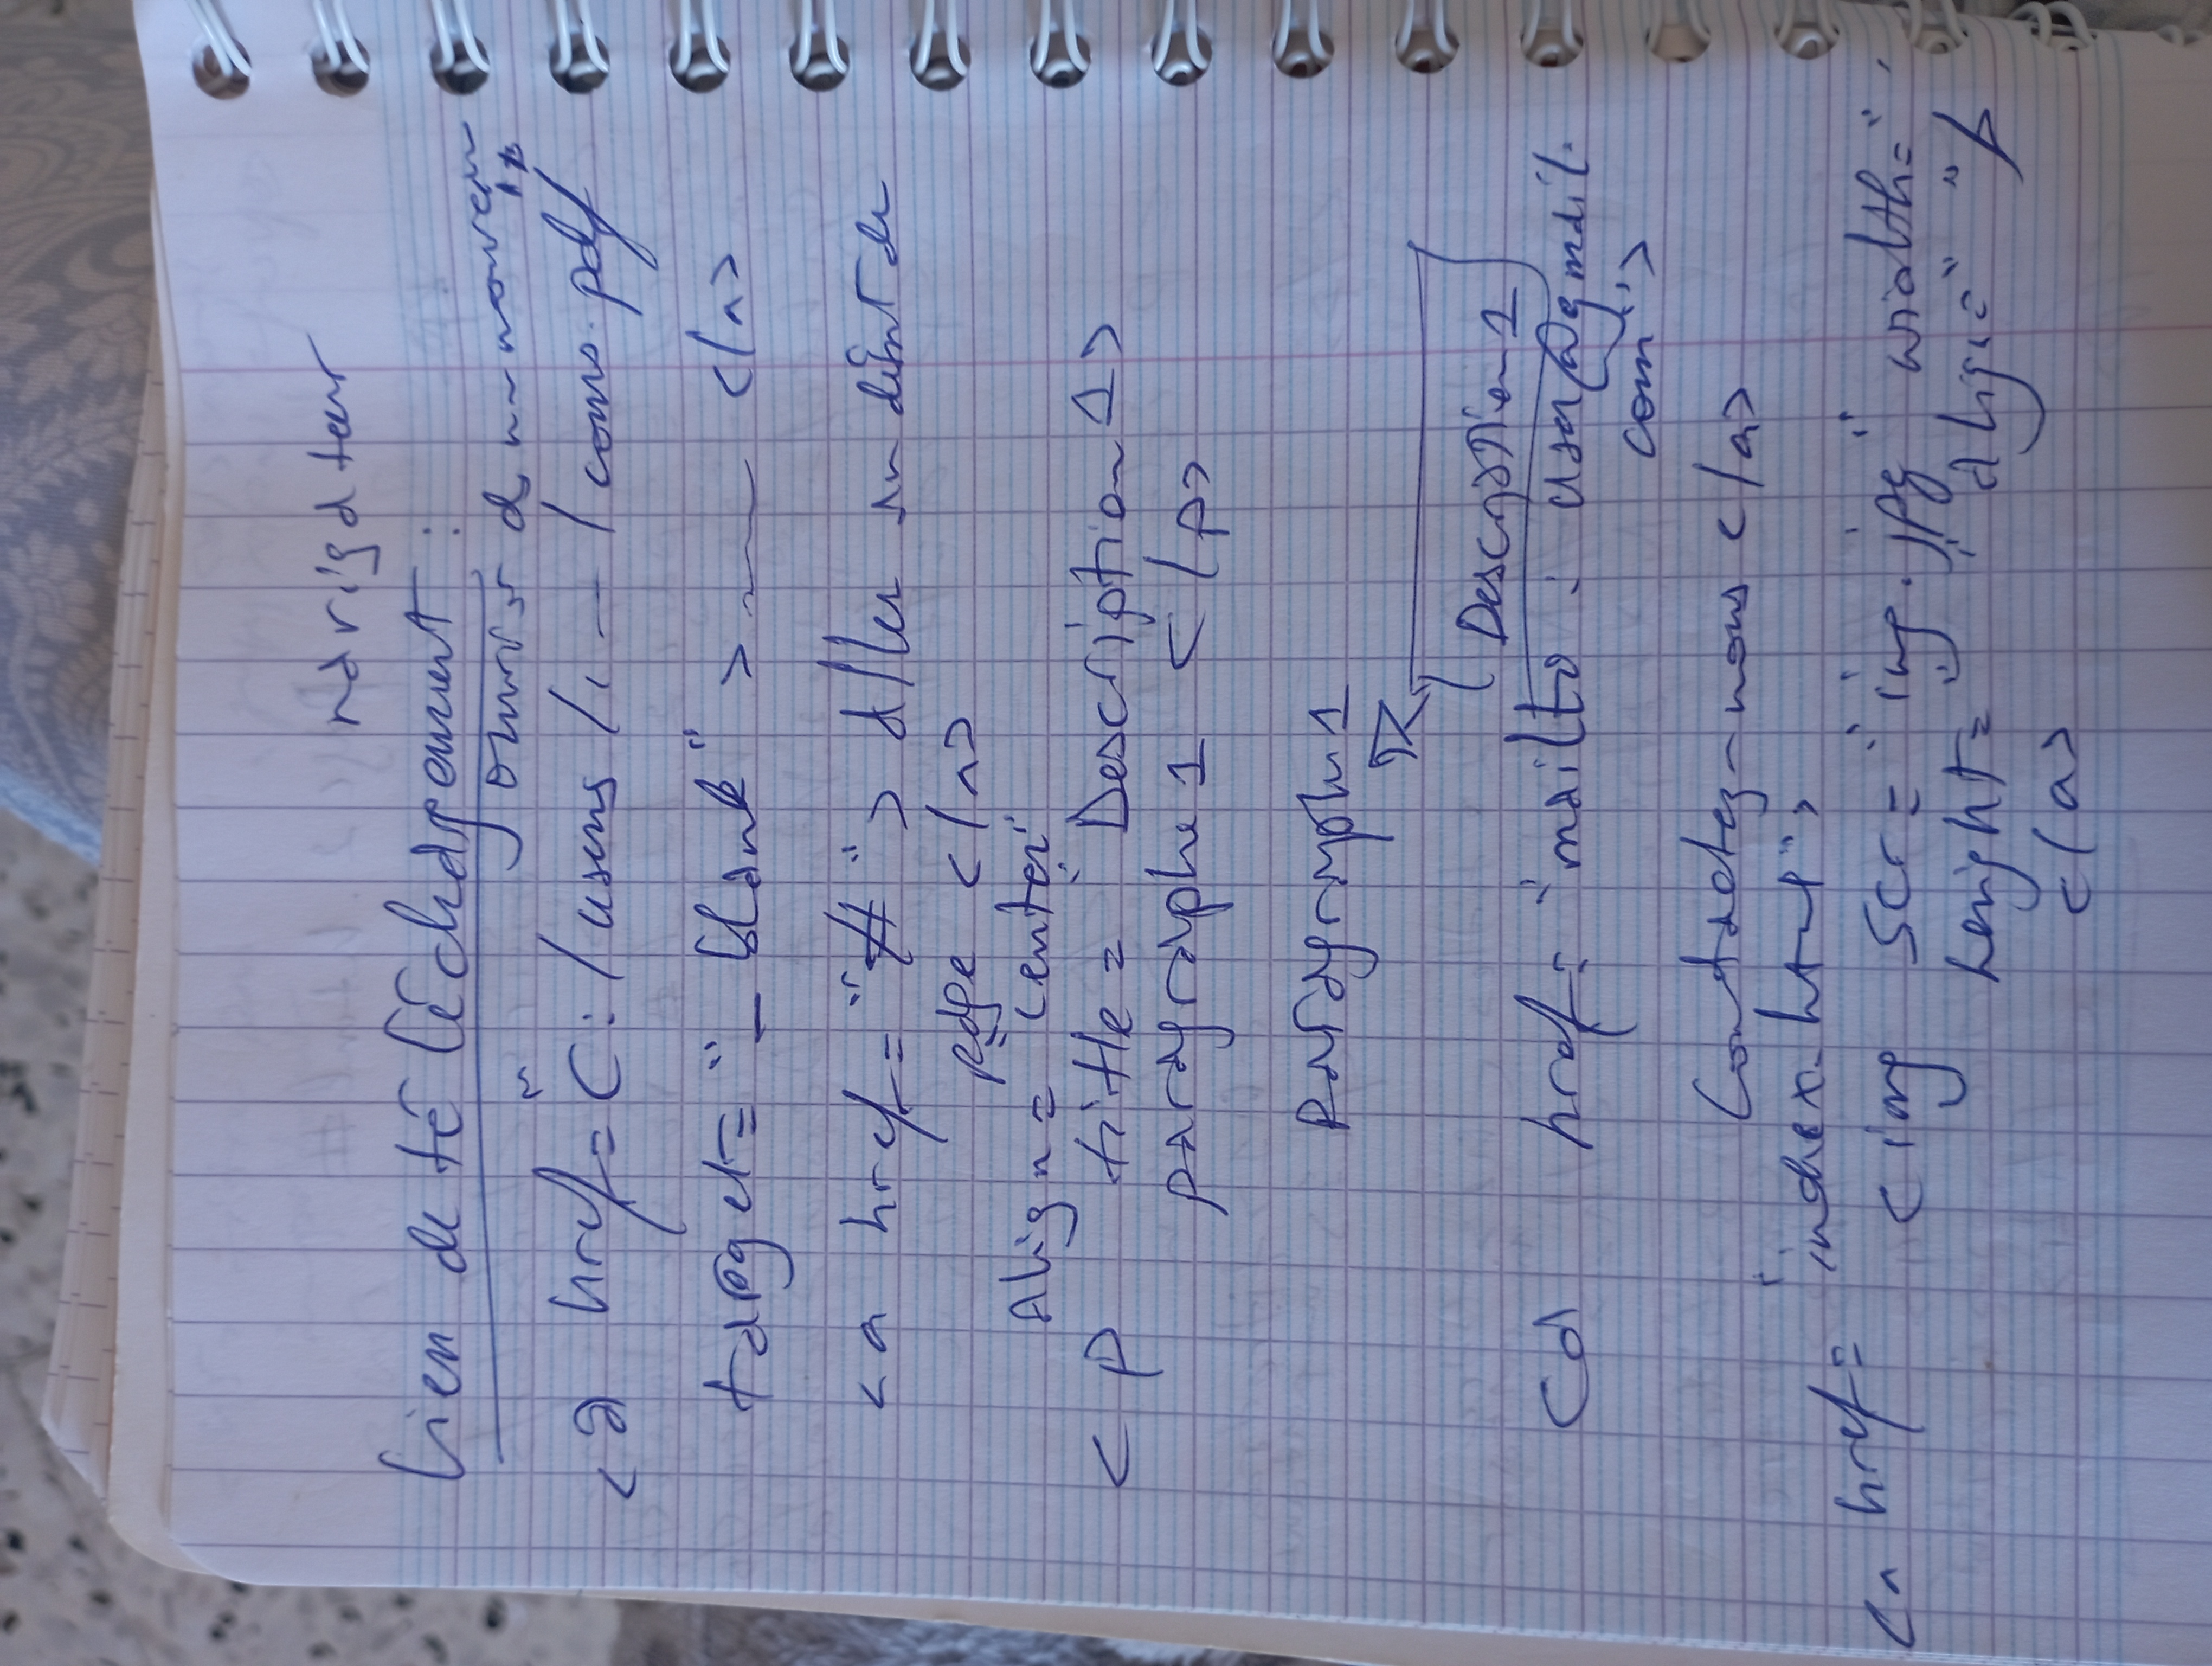 navigateur
lien de téléchargement :
ouvrir ds un nouveau
<a href= "C:/users/...../cours.pdf"
target= "_blank" > </a>
<a href= "#" > Aller au début de
page </a>
Align= "center"
<p title= "Description 1>
paragraphe 1 </p>
paragraphe 1
Description 1
<a href= "mailto : user@gmail.
com">
Contactez-nous </a>
"index.html">
<a href=
<img scr= "img.jpg" width= "
height= " " Align= " "/>
</a>